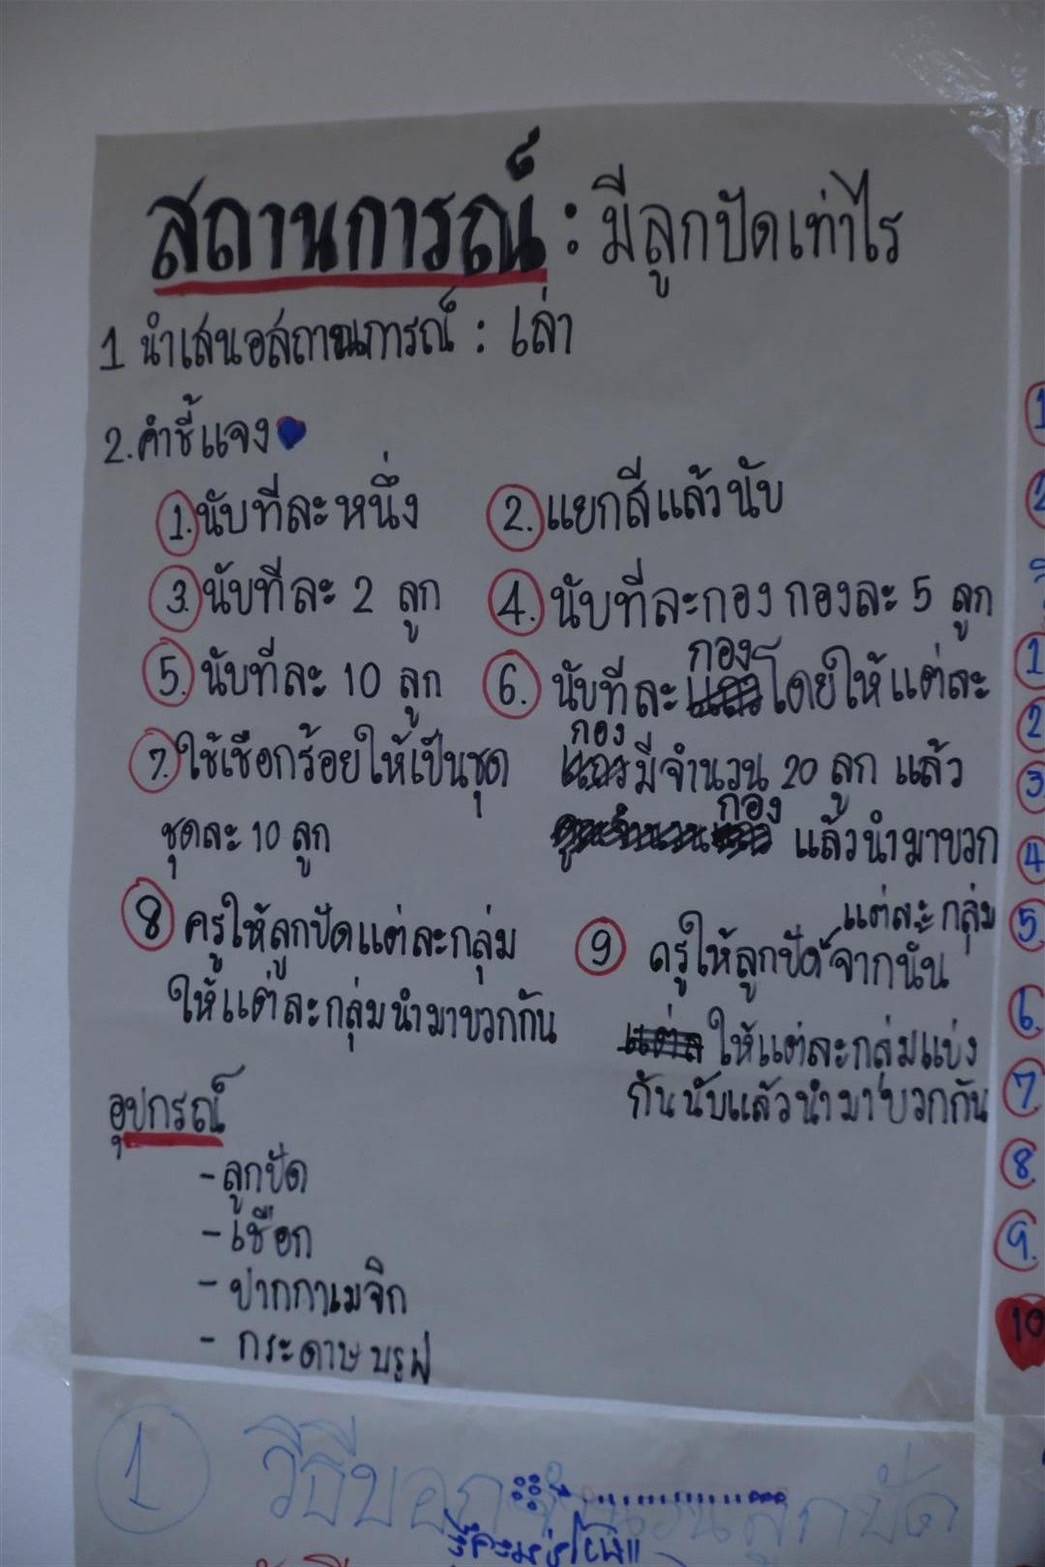 สถานการณ์ : มีลูกปัดเท่าไร
1 นำเสนอสถานการณ์ : เล่า
2. คำชี้แจง
1. นับทีละหนึ่ง
2. แยกสีแล้วนับ
3. นับทีละ 2 ลูก
4. นับทีละกอง กองละ 5 ลูก
5. นับทีละ 10 ลูก
6. นับทีละ กอง โดยให้แต่ละ
กอง มีจำนวน 20 ลูก แล้ว
กอง แล้วนำมาบวก
7. ใช้เชือกร้อยให้เป็นชุด
ชุดละ 10 ลูก
8 ครูให้ลูกปัดแต่ละกลุ่ม
ให้แต่ละกลุ่มนำมาบวกกัน
แต่ละกลุ่ม
9 ครูให้ลูกปัด จากนั้น
ให้แต่ละกลุ่มแบ่ง
กันนับแล้วนำมาบวกกัน
อุปกรณ์
- ลูกปัด
- เชือก
- ปากกาเมจิก
- กระดาษบรูฟ
1
2
1
2
3
4
5
6.
7
8.
9.
10
1 วิธีบอกจำนวนลูกปัด